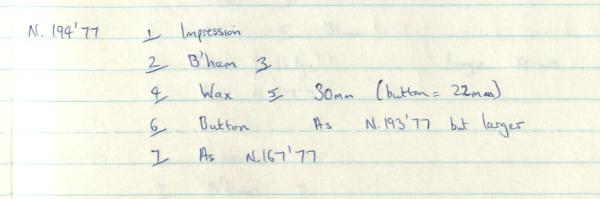 N. 194'77 1 Impression
2 B'ham 3
4 Wax 5 30mm (button = 22mm)
6 Button As N.193'77 but larger
7 As N.167'77